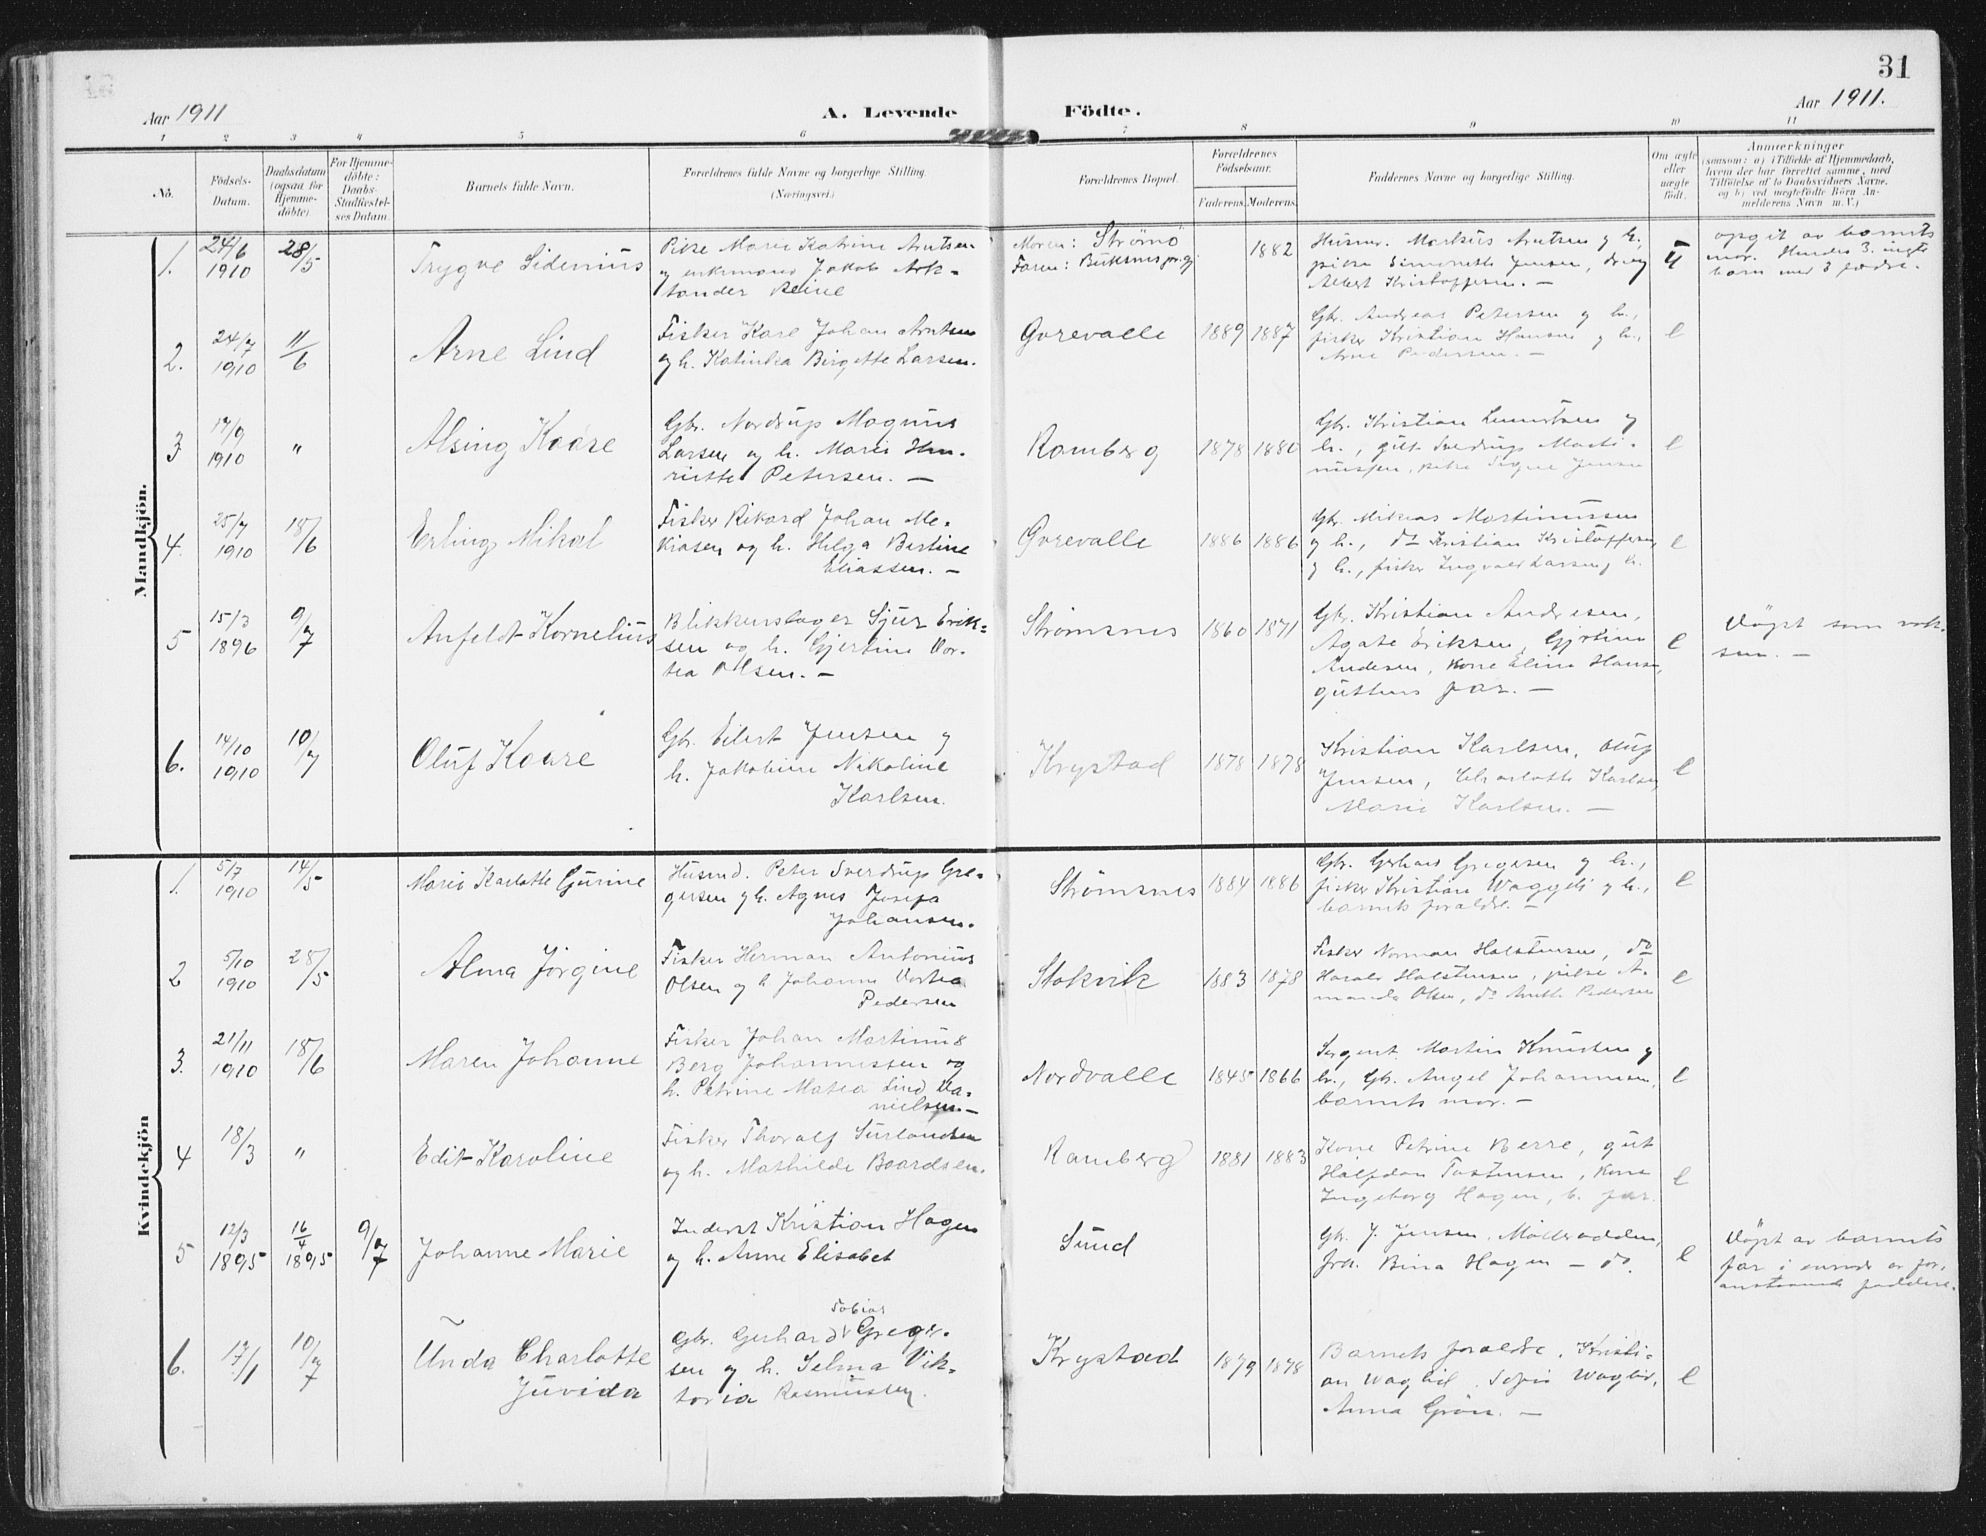 31
Aar 1911
A. Levende Födte.
Aar 1911.
1 2 3 4 5 6 7 8 9 10 11
No.
Födsels-
Datum.
Daabsdatum
(ogsaa for
Hjemme-
döbte)
For Hjemme-
döbte:
Daabs-
Stadfæstel-
ses Datum.
Barnets fulde Navn.
Forældrenes fulde Navne og borgerlige Stilling.
(Næringsvei.)
Forældrenes Bopæl.
Forældrenes
Födselsaar.
Faderens. Moderens.
Faddernes Navne og borgerlige Stilling.
Om ægte
eller
uægte
födt.
Anmærkninger
(saasom: a) i Tilfælde af Hjemmedaab,
hvem der har forrettet samme, med
Tilföielse af to Daabsvidners Navne,
og b) ved uegtefödte Börn An-
melderens Navn m.V.)
Mandkjön.
1.
24/6
1910
28/5
Trygve Sidenius
Pike Marie Katrine Arntsen
og enkemand Jakob Ark-
tander Reine
Moren: Strömö
Faren: Buksnes
1882
Husmr. Markus Arntsen og h.,
pike Jensen,
Albert Kristoffersen. —
u
opgit av barnets
mor. Hendes 3. uegte
barn med 3 fædre.
2.
24/7
1910
11/6
Arne Lind
Fisker Karl Johan Arntsen
og h. Katinka Birgitte Larsen.
Gorevalle
1889 1887
Gbr. Andreas Petersen og h.,
fisker Kristian Hansen og h.,
Arne Pedersen. —
e
3
17/9
1910
"
Alsing Kaare
Gbr. Nordrup Magnus
Larsen og h. Marie Hen-
riette Petersen. —
Ramberg
1878 1880
Gbr. Kristian og
h., gut Sverdrup Marti-
nussen, pike Signe Jensen
e
4.
25/7
1910
18/6
Erling Mikal
Fisker Rikard Johan Me-
kiasen og h. Helga Bertine
Eliassen. —
Gorevalle
1886 1886
Gbr. Mekias Martinussen
og h., do Kristian Kristoffersen
og h., fisker Ingvald Larsen, h.
e
5
15/3
1896
9/7
Anfeldt Kornelius
Blikkenslager Sjur Erik-
sen og h. Gjertine Dor-
tea Olsen. —
Strømsnes
1860 1871
Gbr. Kristian Andresen,
Agate Eriksen, Gjertine
Andresen, kone Eline Hansen,
guttens far. —
e
Døpt som vok-
sen. —
6.
14/10
1910
10/7
Oluf Kaare
Gbr. Eilert Jensen og
h. Jakobine Nikoline
Karlsen.
Krystad
1878 1878
Kristian Karlsen, Oluf
Jensen, Charlotte Karlsen,
Marie Karlsen. —
e
Kvindekjön
1.
5/7
1910
14/5
Marie Karlotte Gurine
Husmd. Peter Sverdrup Gre-
gersen og h. Agnes Josefa
Johansen.
Strømsnes
1884 1886
Gbr. Gerhard Gregersen og h.,
fisker Kristian og h.,
barnets foraldre. —
e
2
5/10
1910
28/5
Alma Jörgine
Fisker Herman Antonius
Olsen og h Johanna Dortea
Pedersen
Stokvik
1883 1878
Fisker Norman Halstensen, do
Harald Halstensen, pike A-
manda Olsen, do Anette Pedersen
e
3.
21/11
1910
18/6
Maren Johanne
Fisker Johan Martinus
Berg Johannessen og
h. Petrine Matea Lind Da-
nielsen. —
Nordvalle
1845 1866
Sergent Martin Knudsen og
h., Gbr. Angel Johannesen,
barnets mor. —
e
4
18/3
"
Edit Karoline
Fisker Thoralf
og h. Mathilde Baardsen.
Ramberg
1881 1883
Kone Petrine Berre, gut
Halfdan Tostensen, kone
Ingeborg Hagen, b. far.
e
5
12/3
1895
16/4
1895
9/7
Johanne Marie
Inderst Kristian Hagen
og h. Anne Elisabet
Sund
Gbr. J. Jensen, Mölleradden,
frk. Bina Hagen — do.
e
Døpt av barnets
far i overvær av for-
anstaaende faddere.
6.
17/1
10/7
Unda Charlotte
Juvida
Gbr. Gerhard Tobias Greger-
sen og h. Selma Vik-
toria Rasmussen.
Krystad
1879 1878
Barnets foraldre, Kristi-
an Waglid, Sofie Waglid,
Anna Grön. —
e